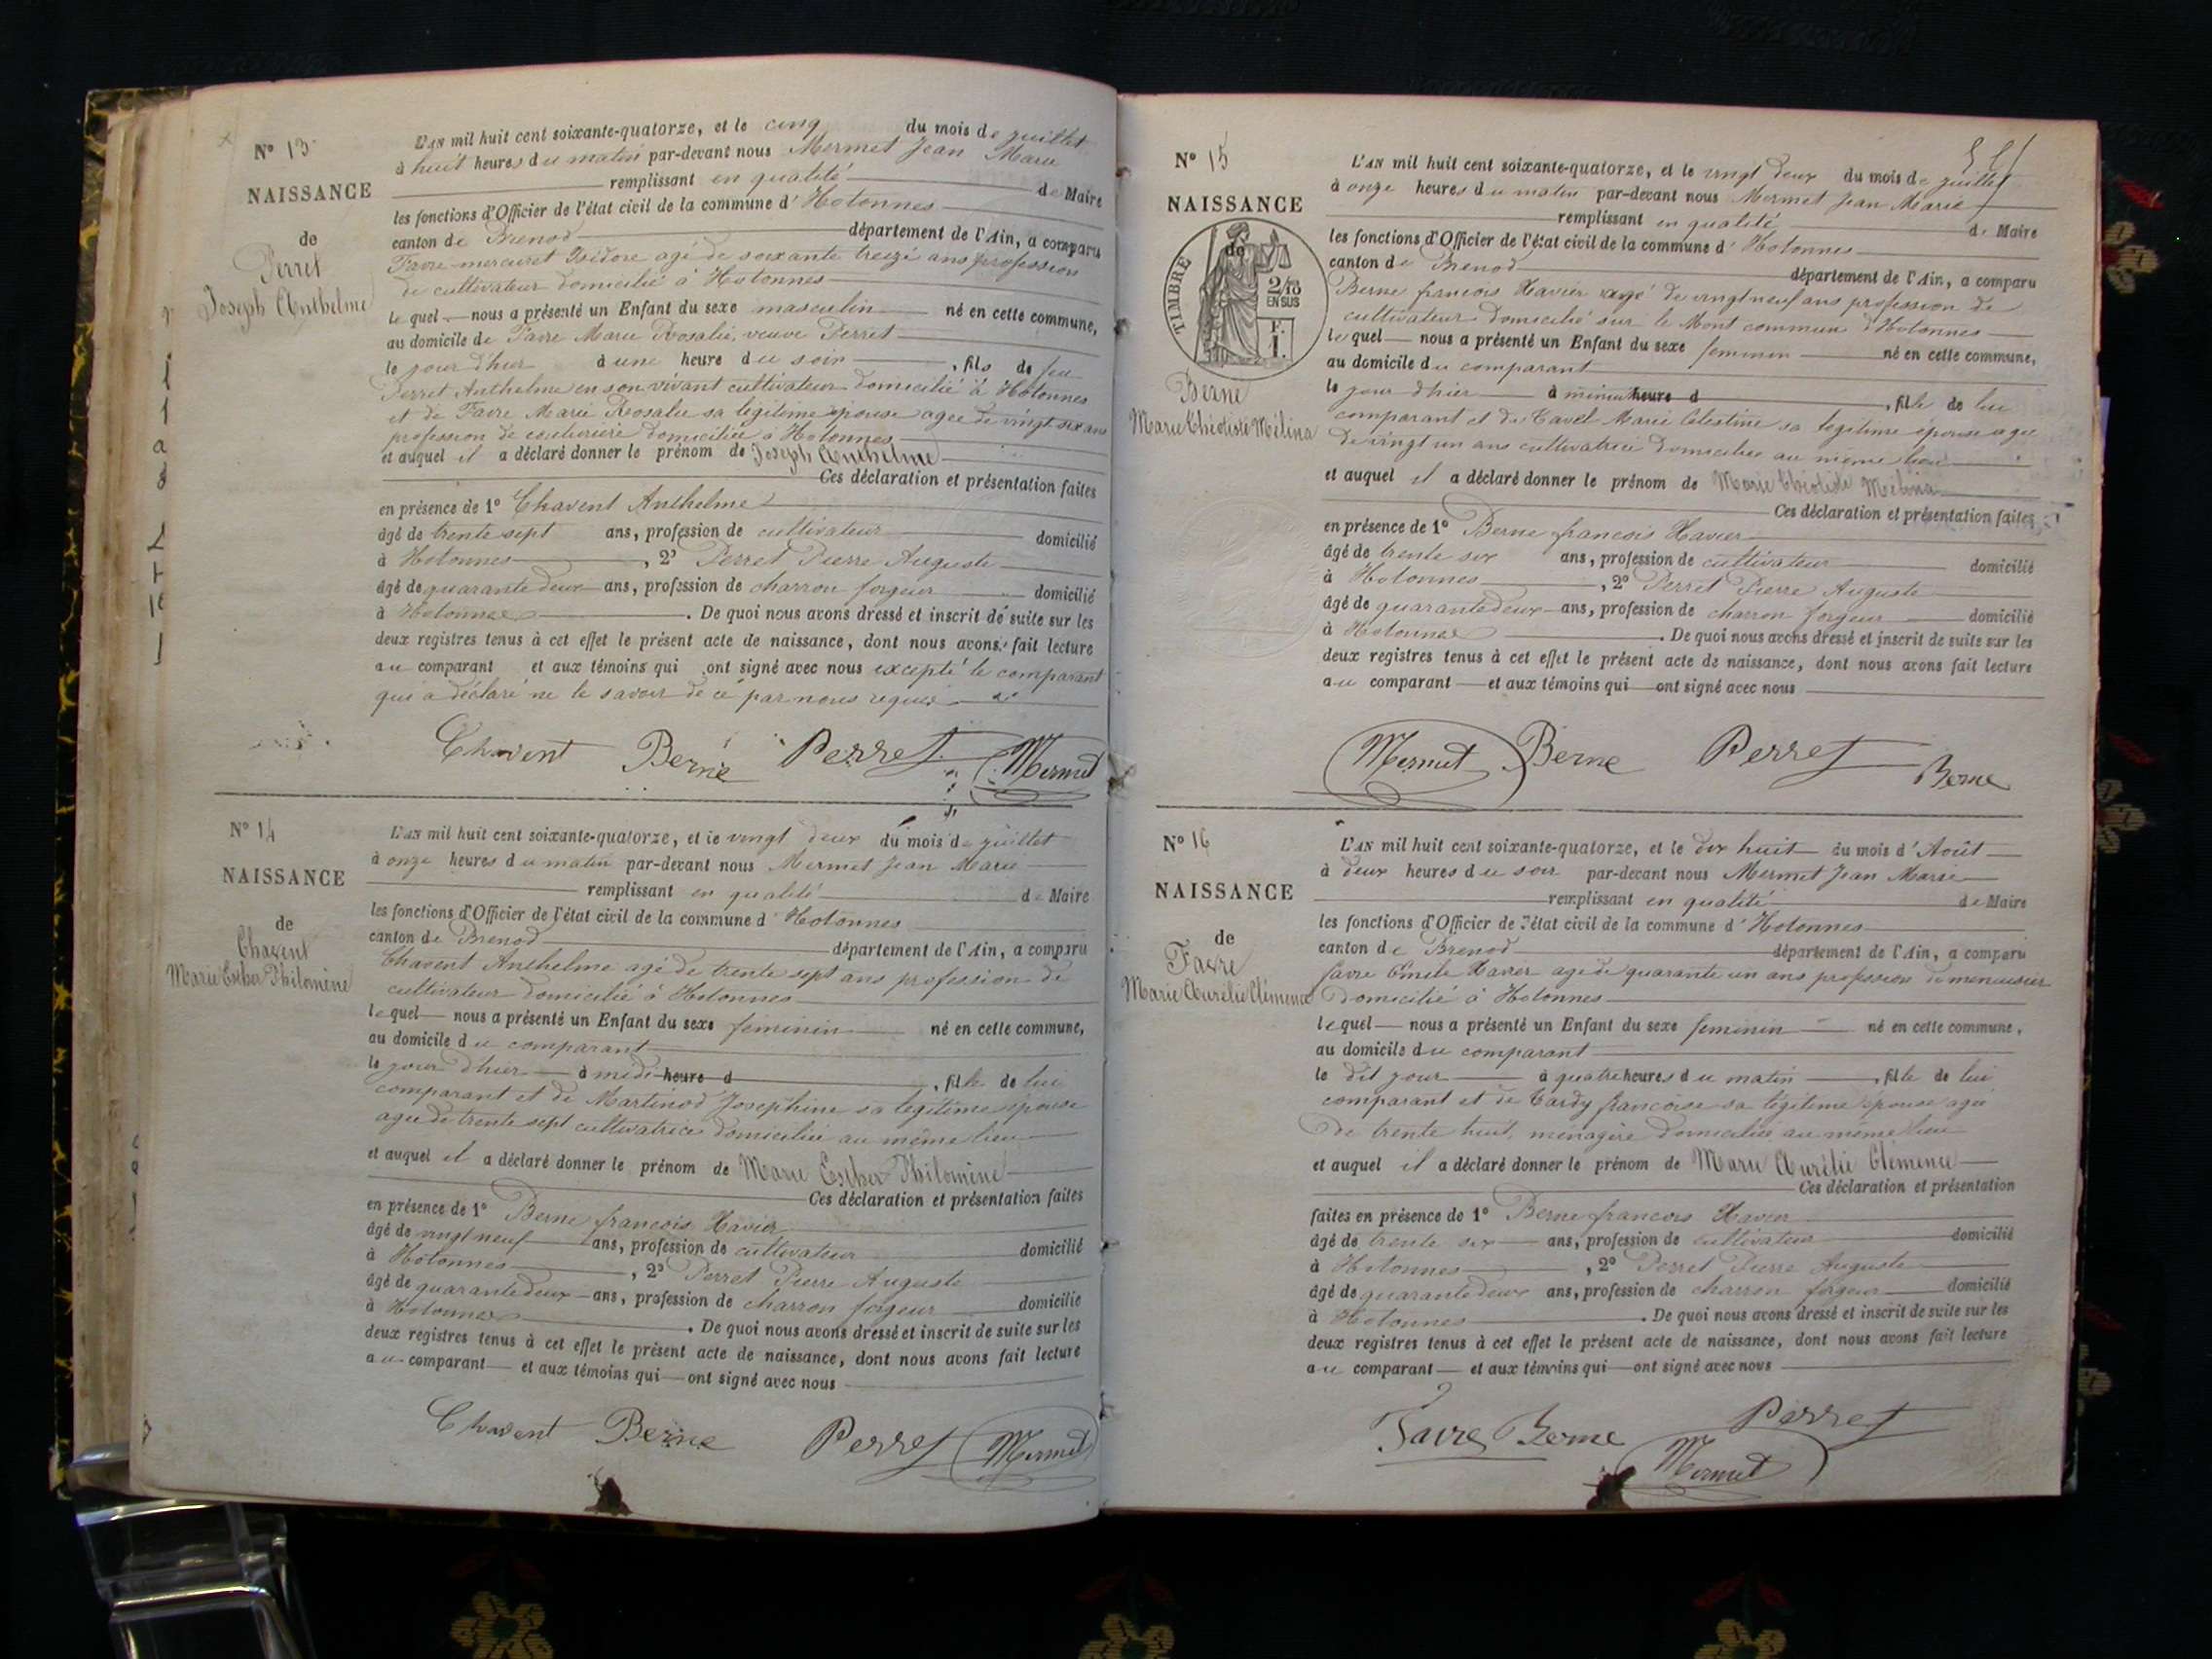 N° 13
NAISSANCE
de
Perret
Joseph Anthelme
L'AN mil huit cent soixante-quatorze, et le cinq du mois de juillet
à huit heures du matin par-devant nous Mermet Jean Marie
remplissant en qualité de Maire
les fonctions d'Officier de l'état civil de la commune d'Hotonnes
canton de Brenod département de l'Ain, a comparu
Favre-mercuret Isidore agé de soixante treize ans profession
de cultivateur domicilié à Hotonnes
lequel nous a présenté un Enfant du sexe masculin né en cette commune,
au domicile de Favre Marie Rosalie, veuve Perret
le jour d'hier à une heure du soir, fils de feu
Perret Anthelme en son vivant cultivateur domicilié à Hotonnes
et de Favre Marie Rosalie sa légitime épouse agée de vingt six ans
profession de couturière domiciliée à Hotonnes
et auquel il a déclaré donner le prénom de Joseph Anthelme
Ces déclaration et présentation faites
en présence de 1° Chavent Anthelme
âgé de trente sept ans, profession de cultivateur domicilié
à Hotonnes, 2° Perret Pierre Auguste
âgé de quarante deux ans, profession de charron forgeur domicilié
à Hotonnes. De quoi nous avons dressé et inscrit de suite sur les
deux registres tenus à cet effet le présent acte de naissance, dont nous avons fait lecture
au comparant et aux témoins qui ont signé avec nous excepté le comparant
qui a déclaré ne le savoir de ce par nous requis
Chavent Berne Perret Mermet
N° 14
NAISSANCE
de
Chavent
Marie Esther Philomène
L'AN mil huit cent soixante-quatorze, et le vingt deux du mois de juillet
à onze heures du matin par-devant nous Mermet Jean Marie
remplissant en qualité de Maire
les fonctions d'Officier de l'état civil de la commune d'Hotonnes
canton de Brenod département de l'Ain, a comparu
Chavent Anthelme agé de trente sept ans profession de
cultivateur domicilié à Hotonnes
lequel nous a présenté un Enfant du sexe féminin né en cette commune,
au domicile du comparant
le jour d'hier à midi heure d, fille de lui
comparant et de Martinod Josephine sa légitime épouse
agée de trente sept cultivatrice domiciliée au même lieu
et auquel il a déclaré donner le prénom de Marie Esther Philomène
Ces déclaration et présentation faites
en présence de 1° Berne françois Xavier
âgé de vingt neuf ans, profession de cultivateur domicilié
à Hotonnes, 2° Perret Pierre Auguste
âgé de quarante deux ans, profession de charron forgeur domicilié
à Hotonnes. De quoi nous avons dressé et inscrit de suite sur les
deux registres tenus à cet effet le présent acte de naissance, dont nous avons fait lecture
au comparant et aux témoins qui ont signé avec nous
Chavent Berne Perret Mermet
N° 15
NAISSANCE
de
TIMBRE
2/10
EN SUS
F.
1.
Berne
Marie Théotiste Mélina
L'AN mil huit cent soixante-quatorze, et le vingt deux du mois de juillet
à onze heures du matin par-devant nous Mermet Jean Marie
remplissant en qualité de Maire
les fonctions d'Officier de l'état civil de la commune d'Hotonnes
canton de Brenod département de l'Ain, a comparu
Berne françois Xavier agé de vingt neuf ans profession de
cultivateur domicilié sur le Mont commune d'Hotonnes
lequel nous a présenté un Enfant du sexe féminin né en cette commune,
au domicile du comparant
le jour d'hier à minuit heure d, fille de lui
comparant et de Tavel Marie Célestine sa légitime épouse agée
de vingt un ans cultivatrice domiciliée au même lieu
et auquel il a déclaré donner le prénom de Marie Théotiste Mélina
Ces déclaration et présentation faites
en présence de 1° Berne françois Xavier
âgé de trente six ans, profession de cultivateur domicilié
à Hotonnes, 2° Perret Pierre Auguste
âgé de quarante deux ans, profession de charron forgeur domicilié
à Hotonnes. De quoi nous avons dressé et inscrit de suite sur les
deux registres tenus à cet effet le présent acte de naissance, dont nous avons fait lecture
au comparant et aux témoins qui ont signé avec nous
Mermet Berne Perret Berne
N° 16
NAISSANCE
de
Favre
Marie Aurélie Clémence
L'AN mil huit cent soixante-quatorze, et le dix huit du mois d'Août
à deux heures du soir par-devant nous Mermet Jean Marie
remplissant en qualité de Maire
les fonctions d'Officier de l'état civil de la commune d'Hotonnes
canton de Brenod département de l'Ain, a comparu
favre Emile Xavier agé de quarante un ans profession de menuisier
domicilié à Hotonnes
lequel nous a présenté un Enfant du sexe féminin né en cette commune,
au domicile du comparant
le dit jour à quatre heures du matin, fille de lui
comparant et de Tardy françoise sa légitime épouse agée
de trente huit, ménagère domiciliée au même lieu
et auquel il a déclaré donner le prénom de Marie Aurélie Clémence
Ces déclaration et présentation
faites en présence de 1° Berne françois Xavier
âgé de trente six ans, profession de cultivateur domicilié
à Hotonnes, 2° Perret Pierre Auguste
âgé de quarante deux ans, profession de charron forgeur domicilié
à Hotonnes. De quoi nous avons dressé et inscrit de suite sur les
deux registres tenus à cet effet le présent acte de naissance, dont nous avons fait lecture
au comparant et aux témoins qui ont signé avec nous
Favre Berne Perret
Mermet